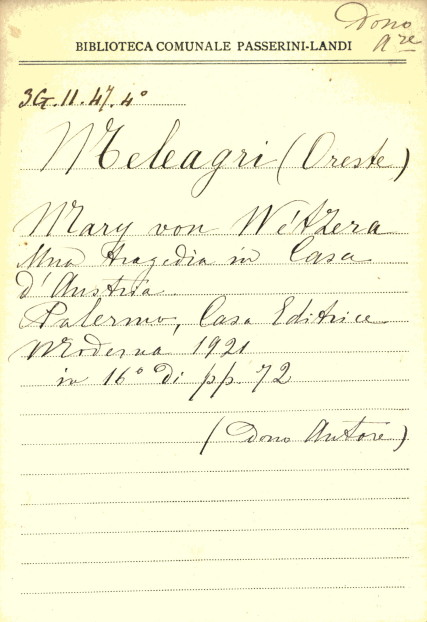 Dono
A.re
BIBLIOTECA COMUNALE PASSERINI-LANDI
3G.11.47.4°
Meleagri (Oreste)
Mary von Wétzera
Una tragedia in Casa
d'Austria
Palermo, Casa Editrice
Moderna 1921
in 16° di pp. 72
(Dono Autore)